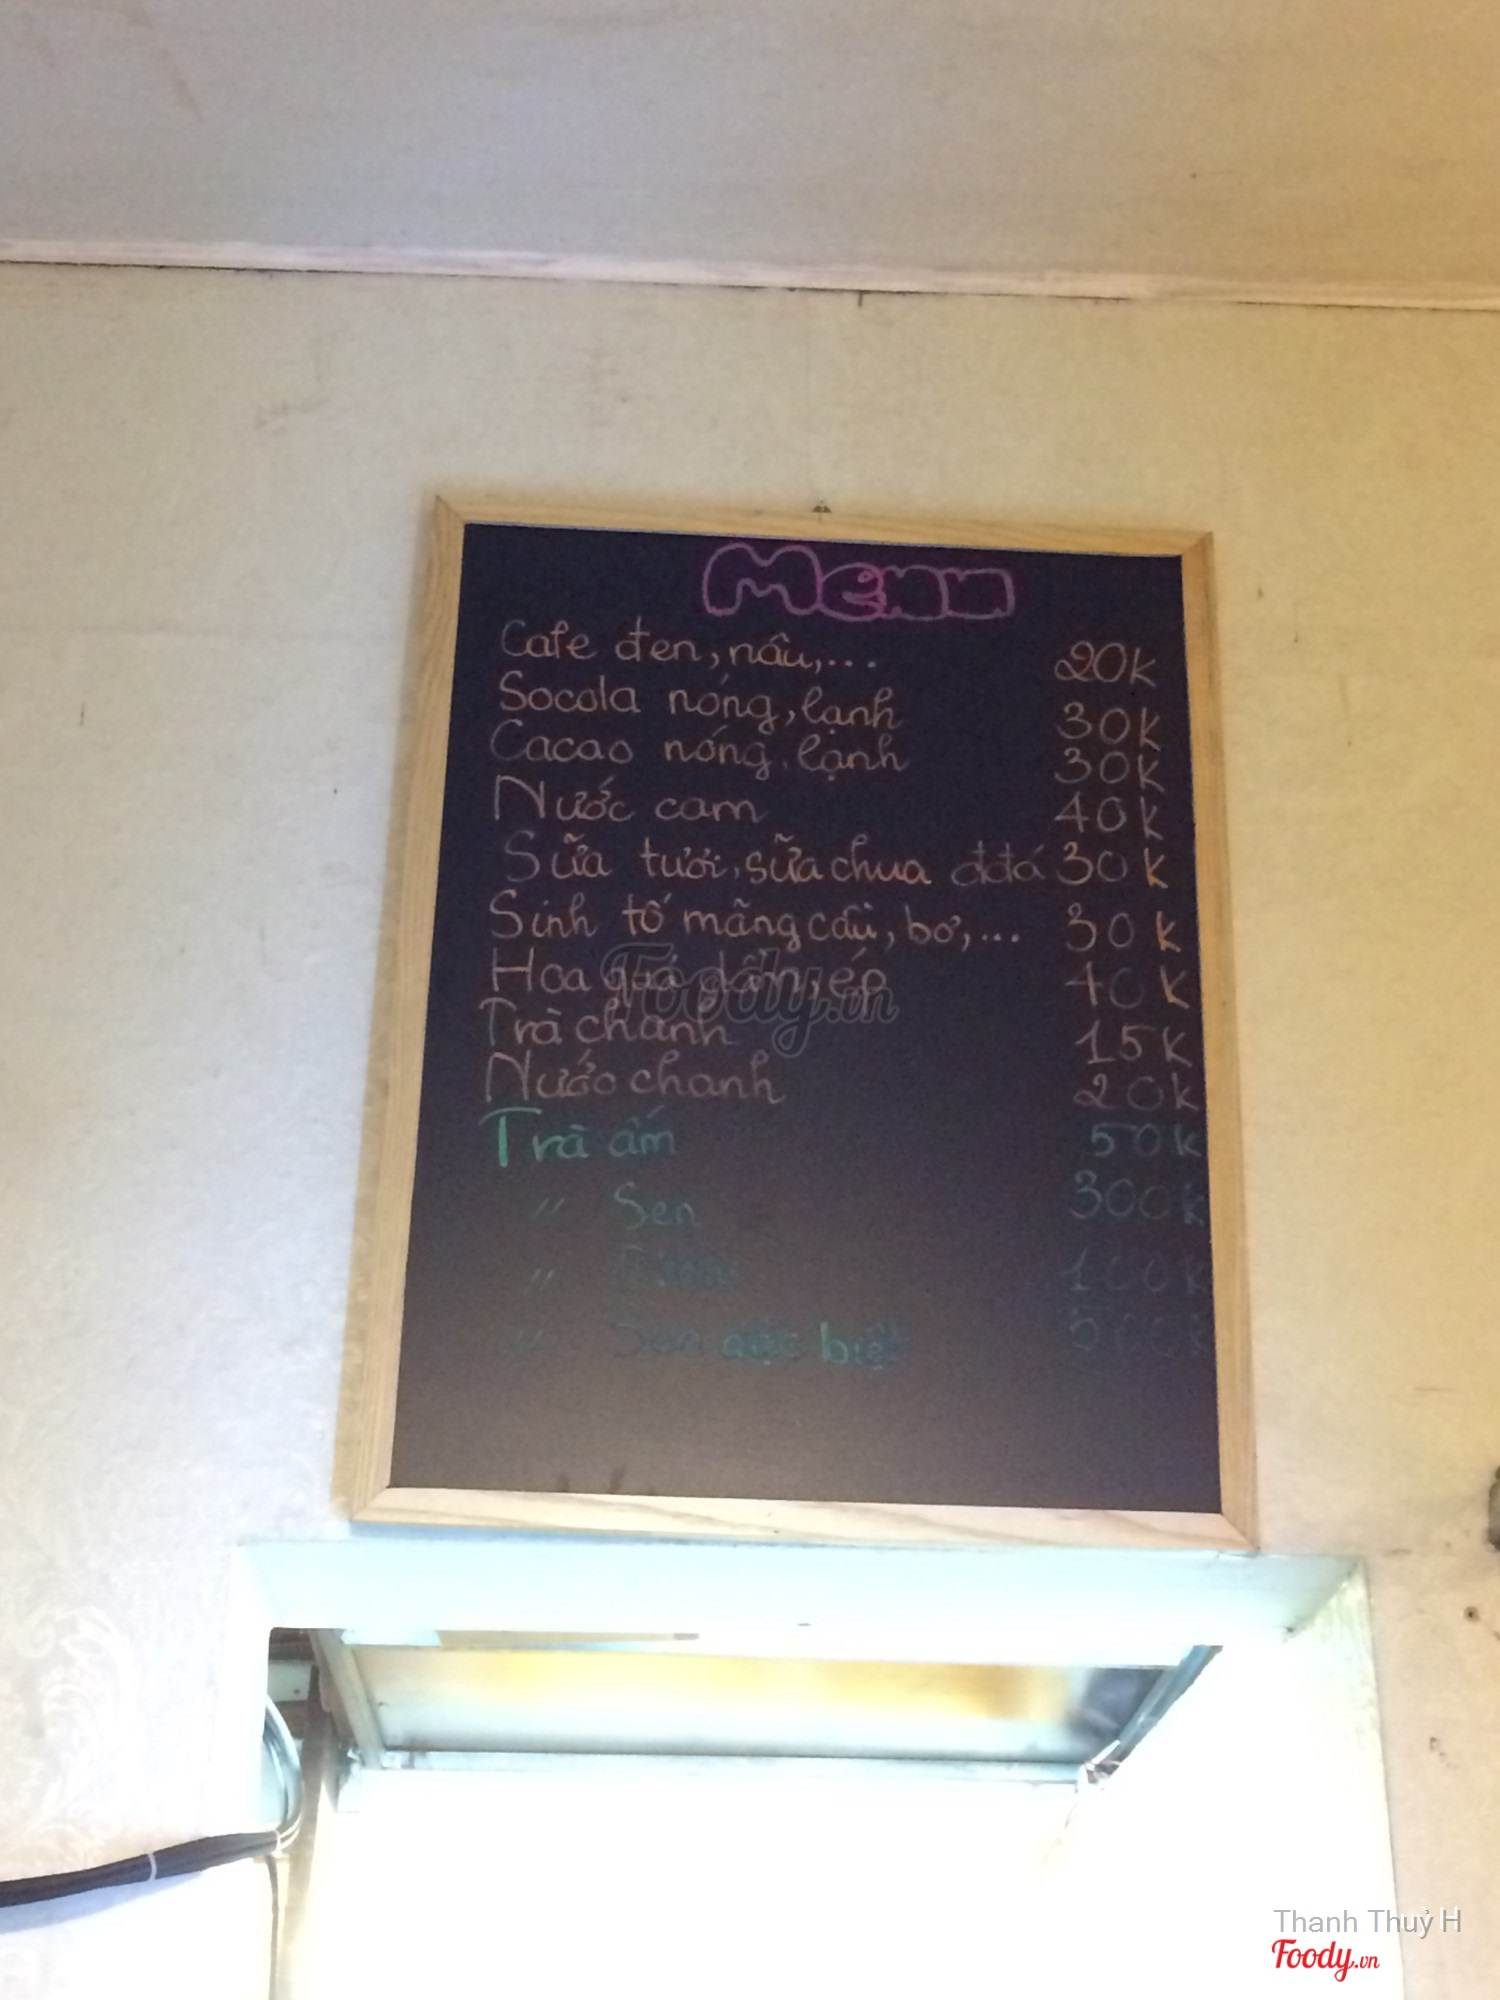 Menu
Cafe đen, nâu,... 20k
Socola nóng, lạnh 30k
Cacao nóng, lạnh 30k
Nước cam 40k
Sữa tươi, sữa chua đđá 30k
Sinh tố mãng cầu, bơ,... 30k
Hoa quả dầm, ép 40k
Trà chanh 15k
Nước chanh 20k
Trà ấm 50k
" Sen 300k
" 100k
" Sen đặc biệt 500k
Foody.vn
Thanh Thuỷ H
Foody.vn